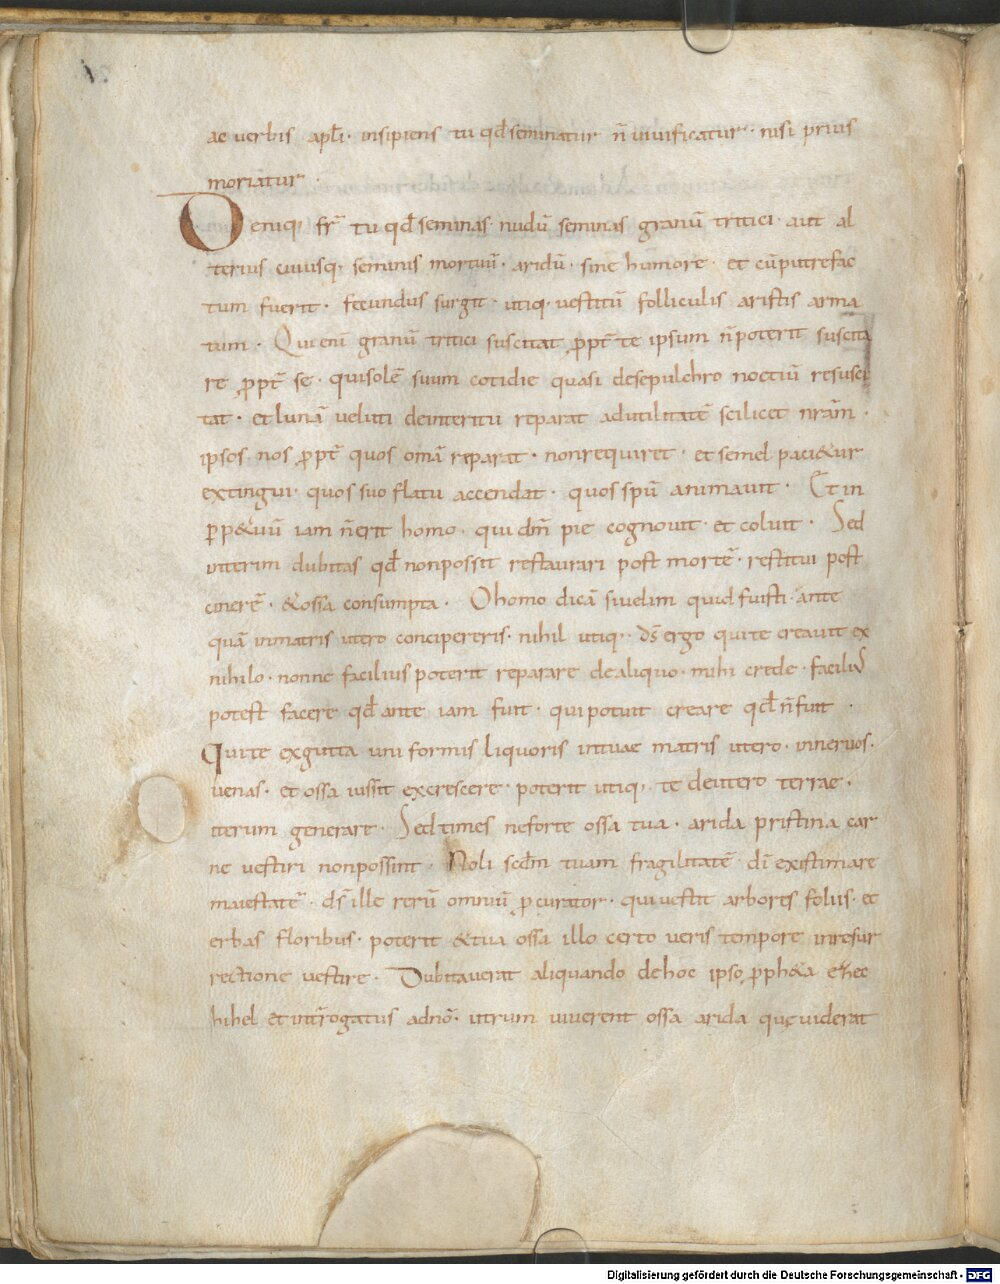 ac verbis apl̄i · insipiens tu qd̄ seminatur n̄ uiuificatur · nisi prius
moriatur ·
Deniq; fr̄ tu qd̄ seminas · nudū seminas granū tritici · aut al
terius cuiusq; seminis mortuū · aridū · sine humore · et cū putrefac
tum fuerit · fecundus surgit · utiq; uestitū folliculis aristis arma
tum · Qui enī granū tritici suscitat ꝓpt̄ te ipsum n̄ poterit suscita
re ꝓpt̄ se · qui solē suum cotidie quasi de sepulchro noctiū resusci
tat · et lunā veluti de interitu reparat ad utilitatē scilicet nr̄am ·
ipsos nos ꝓpt̄ quos om̄a reparat · non requiret · et semel paci&ur
extingui · quos suo flatu accendat · quos sp̄u animauit · Et in
ꝑp&uū iam n̄ erit homo · qui dm̄ pie cognouit · et coluit · Sed
interim dubitas qd̄ non possit restaurari post mortē · restitui post
cinerē · & ossa consumpta · O homo dicā si uelim quid fuisti · ante
quā in matris utero concipereris · nihil utiq; · ds̄ ergo qui te creauit ex
nihilo · nonne facilius poterit reparare de aliquo · mihi crede · facilius
potest facere qd̄ ante iam fuit · qui potuit creare qd̄ n̄ fuit ·
Qui te ex gutta uniformis liquoris in tuae matris utero · in neruos ·
uenas · et ossa iussit excrescere · poterit utiq; te de utero terrae ·
iterum generare · Sed times ne forte ossa tua · arida pristina car
ne uestiri non possint · Noli scdm̄ tuam fragilitatē · dī existimare
maiestatē · ds̄ ille rerū omniū ꝓcurator · qui uestit arbores foliis · et
erbas floribus · poterit & tua ossa illo certo veris tempore in resur
rectione uestire · Dubitauerat aliquando de hoc ipso ꝓph&a ezec
hihel et intr̄rogatus a dnō · utrum uiuerent ossa arida quę uiderat
Digitalisierung gefördert durch die Deutsche Forschungsgemeinschaft - DFG